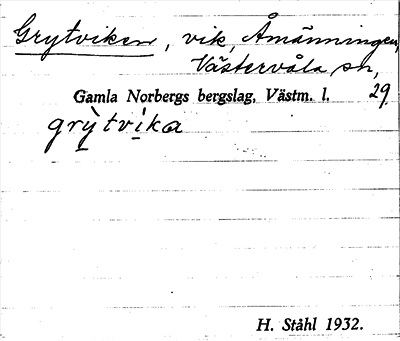 Grytviken, vik, Åmänningen,
Västervåla sn,
Gamla Norbergs bergslag, Västm. l. 29
grỳtvika
H. Ståhl 1932.